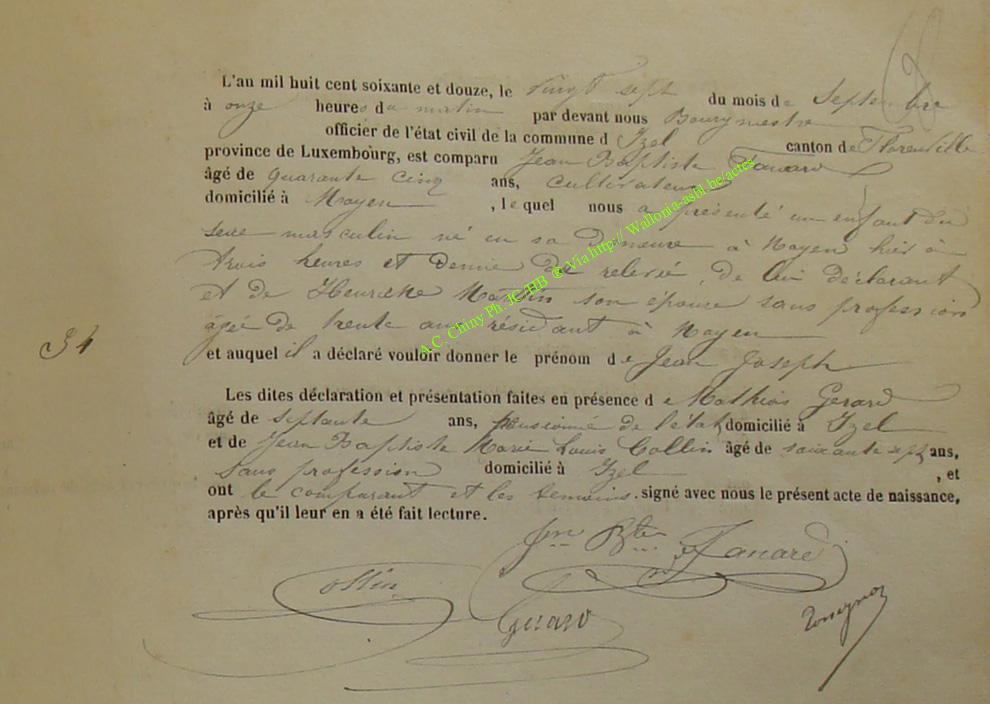 L'an mil huit cent soixante et douze, le vingt sept du mois de Septembre
à onze heures du matin par devant nous Bourgmestre
officier de l'état civil de la commune d Izel canton de Florenville
province de Luxembourg, est comparu Jean Baptiste
âgé de quarante cinq ans, cultivateur
domicilié à Moyen, lequel nous a présenté un enfant du
sexe masculin né en sa demeure à Moyen hier à
trois heures et demie de relevée, de lui déclarant
et de Henriette Martin son épouse sans profession
âgé de trente ans résidant à Moyen
34
et auquel il a déclaré vouloir donner le prénom de Jean Joseph
Les dites déclaration et présentation faites en présence de Mathias Gerard
âgé de septante ans, pensionné de l'état domicilié à Izel
et de Jean Baptiste Marie Louis Collin âgé de soixante sept ans,
sans profession domicilié à Izel, et
ont le comparant et les temoins signé avec nous le présent acte de naissance,
après qu'il leur en a été fait lecture.
Jean Bte
Collin
Gerard
A.C. Chiny Ph. JC. HB © Via http:// Wallonia-asbl.be/actes